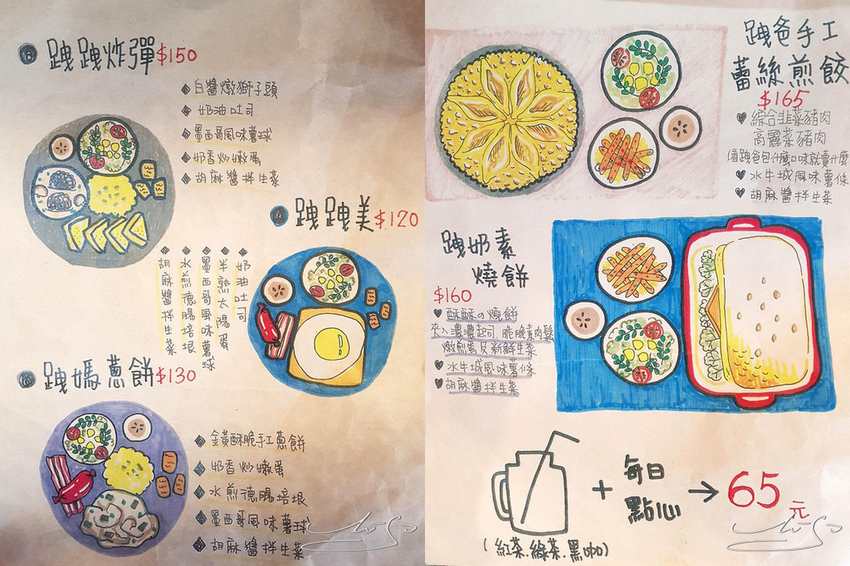 跩跩炸彈$150
白醬燉獅子頭
奶油吐司
墨西哥風味薯球
奶香炒嫩蛋
胡麻醬拌生菜
跩跩美$120
奶油吐司
半熟太陽蛋
墨西哥風味薯球
水煎德腸培根
胡麻醬拌生菜
跩媽蔥餅$130
金黃酥脆手工蔥餅
奶香炒嫩蛋
水煎德腸培根
墨西哥風味薯球
胡麻醬拌生菜
跩爸手工
蕾絲煎餃
$165
綜合韭菜豬肉
高麗菜豬肉
(看跩爸包什麼口味就賣什麼
水牛城風味薯條
胡麻醬拌生菜
跩奶素
燒餅
$160
酥酥の燒餅
夾入濃濃起司 脆脆素肉鬆
嫩煎蛋及新鮮生菜
水牛城風味薯條
胡麻醬拌生菜
+ 每日
點心
→ 65元
(紅茶.綠茶.黑咖)